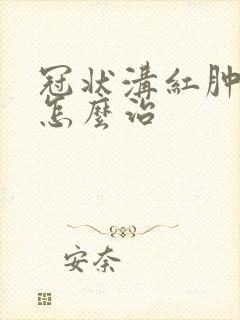 冠状溝紅肿
怎麼治
安奈